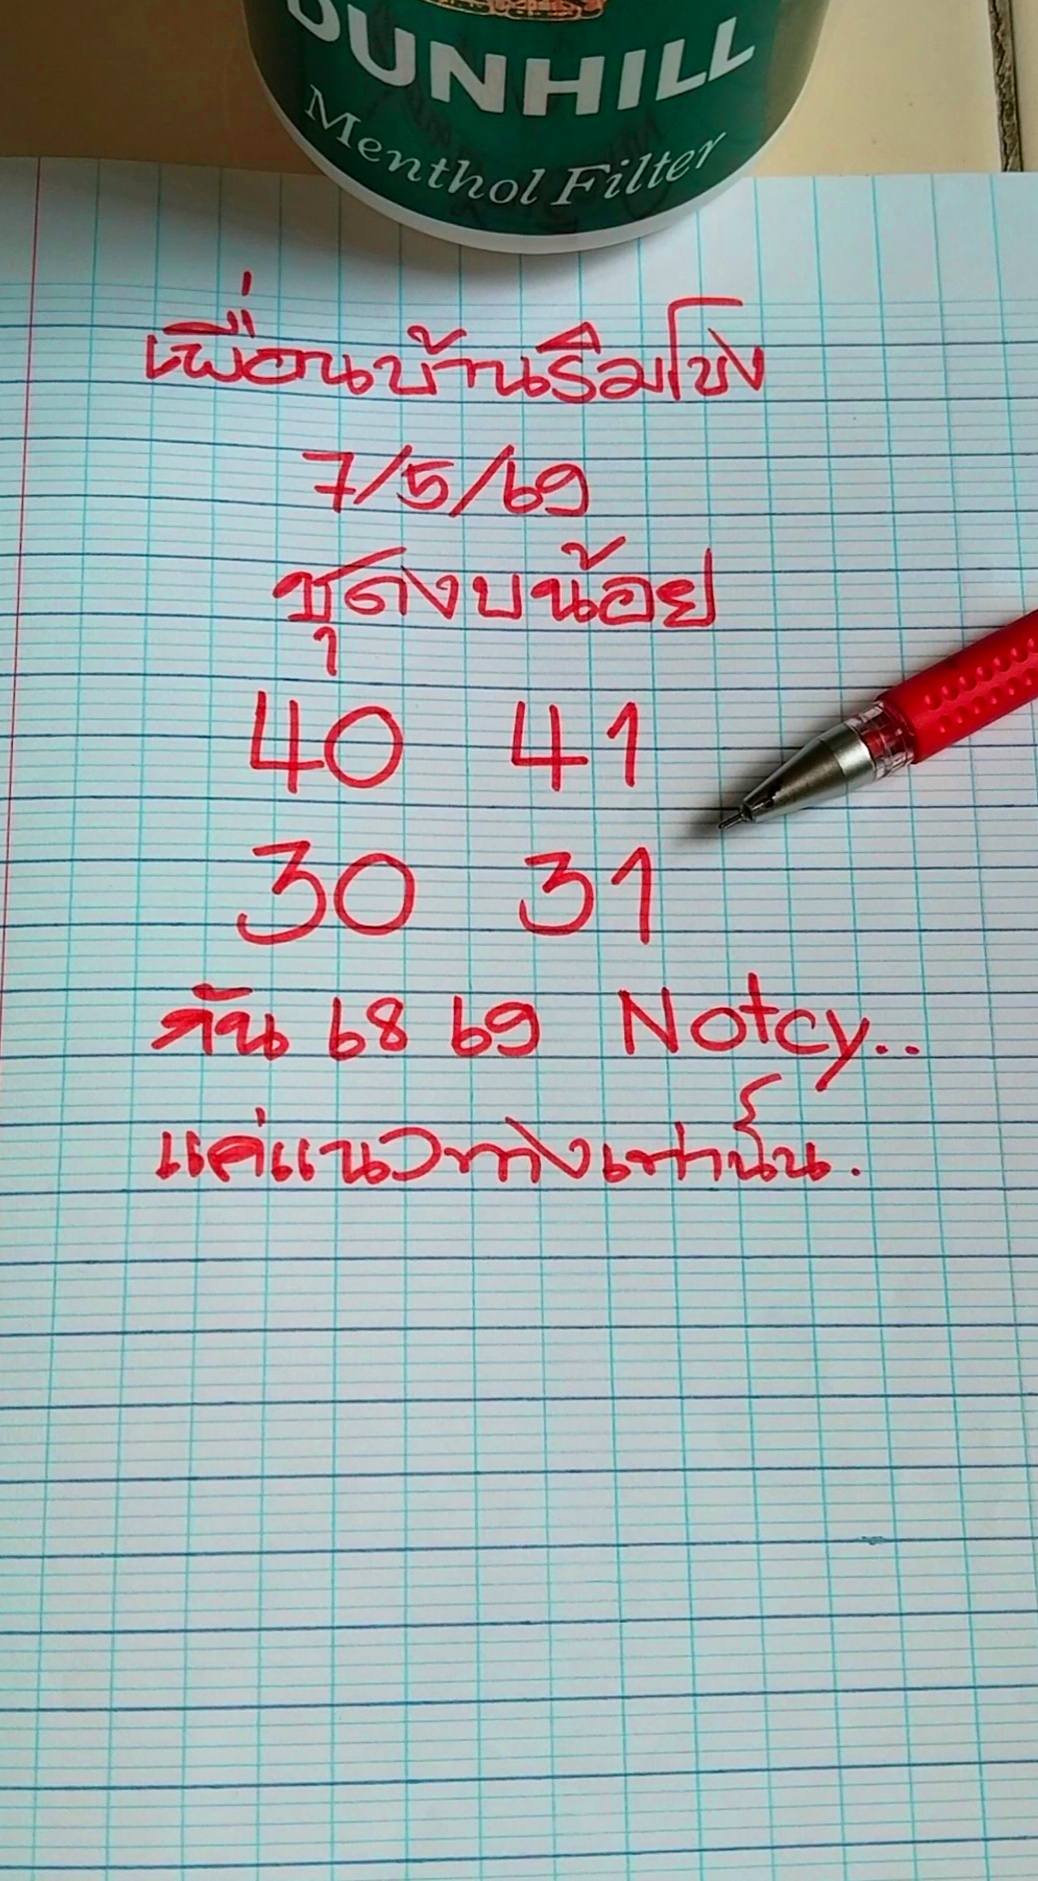 DUNHILL
Menthol Filter
เพื่อนบ้านริมโขง
7/5/69
ชุดงบน้อย
40 41
30 31
กัน 68 69 Notcy..
แค่แนวทางเท่านั้น.